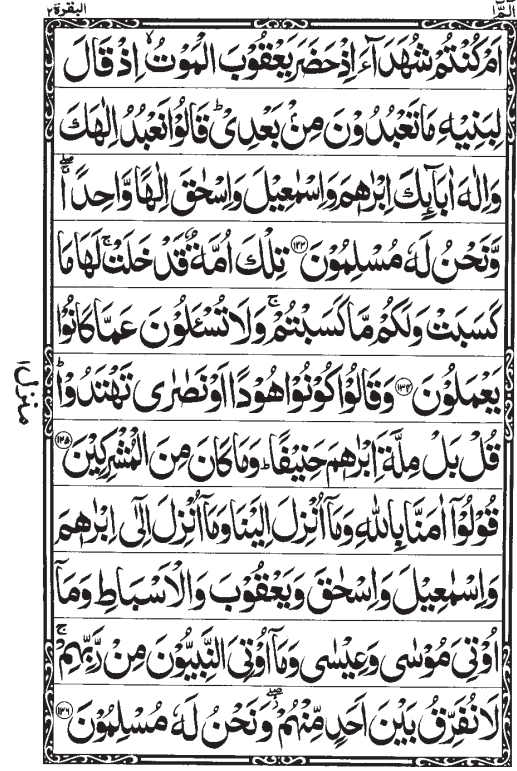 الٓمّٓ ١
البقرة ٢
اَمۡ كُنۡتُمۡ شُهَدَآءَ اِذۡ حَضَرَ يَعۡقُوۡبَ الۡمَوۡتُ ۙ اِذۡ قَالَ
لِبَنِيۡهِ مَا تَعۡبُدُوۡنَ مِنۡۢ بَعۡدِىۡ ؕ قَالُوۡا نَعۡبُدُ اِلٰهَكَ
وَاِلٰهَ اٰبَآٮِٕكَ اِبۡرٰهٖمَ وَاِسۡمٰعِيۡلَ وَاِسۡحٰقَ اِلٰهًا وَّاحِدًا ۖۚ
وَّنَحۡنُ لَهٗ مُسۡلِمُوۡنَ ﴿۱۳۳﴾ تِلۡكَ اُمَّةٌ قَدۡ خَلَتۡ ۚ لَهَا مَا
كَسَبَتۡ وَلَكُمۡ مَّا كَسَبۡتُمۡ ۚ وَلَا تُسۡـَٔلُوۡنَ عَمَّا كَانُوۡا
يَعۡمَلُوۡنَ ﴿۱۳۴﴾ وَقَالُوۡا كُوۡنُوۡا هُوۡدًا اَوۡ نَصٰرٰى تَهۡتَدُوۡا ؕ
قُلۡ بَلۡ مِلَّةَ اِبۡرٰهٖمَ حَنِيۡفًا ؕ وَمَا كَانَ مِنَ الۡمُشۡرِكِيۡنَ ﴿۱۳۵﴾
قُوۡلُوۡٓا اٰمَنَّا بِاللّٰهِ وَمَآ اُنۡزِلَ اِلَيۡنَا وَمَآ اُنۡزِلَ اِلٰٓى اِبۡرٰهٖمَ
وَاِسۡمٰعِيۡلَ وَاِسۡحٰقَ وَيَعۡقُوۡبَ وَالۡاَسۡبَاطِ وَمَآ
اُوۡتِىَ مُوۡسٰى وَعِيۡسٰى وَمَآ اُوۡتِىَ النَّبِيُّوۡنَ مِنۡ رَّبِّهِمۡ ۚ
لَا نُفَرِّقُ بَيۡنَ اَحَدٍ مِّنۡهُمۡ ۖ وَنَحۡنُ لَهٗ مُسۡلِمُوۡنَ ﴿۱۳۶﴾
منزل ١